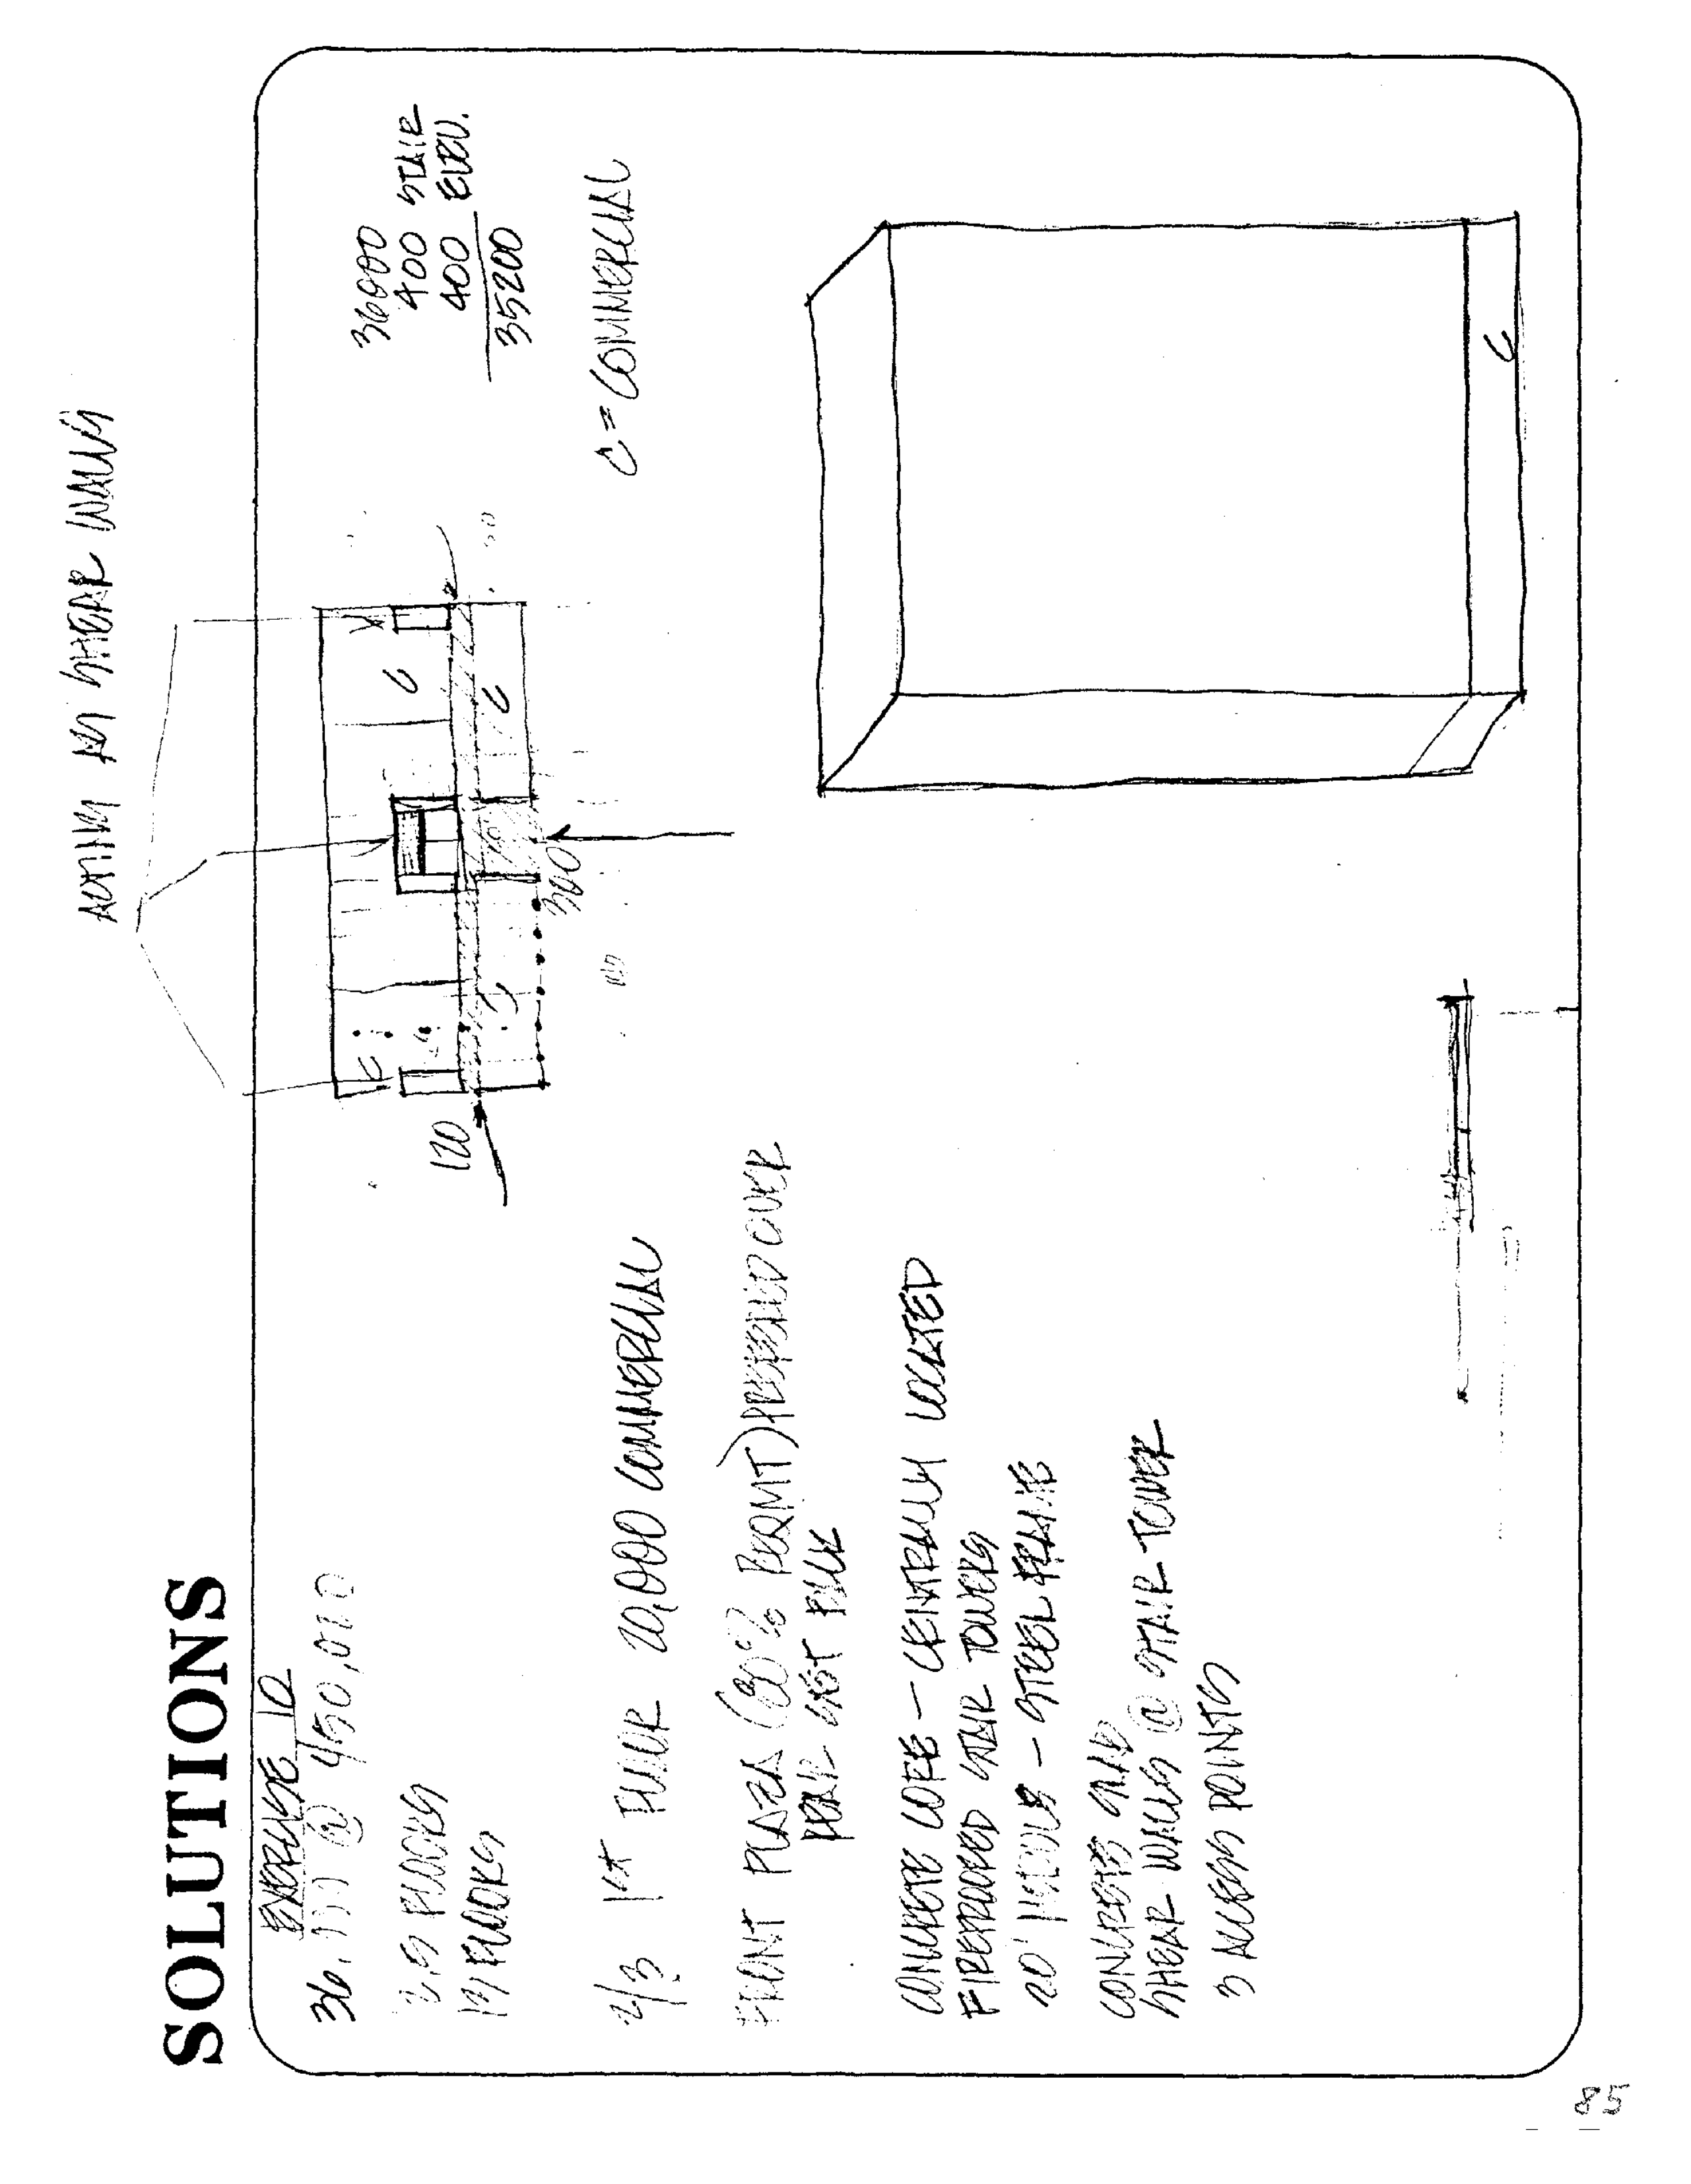 SOLUTIONS
EXERCISE 10
36,000 @ 450,000
12.5 FLOORS
13 FLOORS
2/3 1st FLOOR 20,000 COMMERCIAL
FRONT PLAZA (30% REQMT) PREFERED OVER
CONCRETE CORE - CENTRALLY LOCATED
FIREPROOFED STAIR TOWERS
20' MODULE - STEEL FRAME
CONCRETE SLAB
SHEAR WALLS @ STAIR TOWER
3 ACCESS POINTS
ACTING AS SHEAR WALLS
36000
400 STAIR
400 ELEV.
35200
C = COMMERCIAL
120
300
C
C
C
C
85